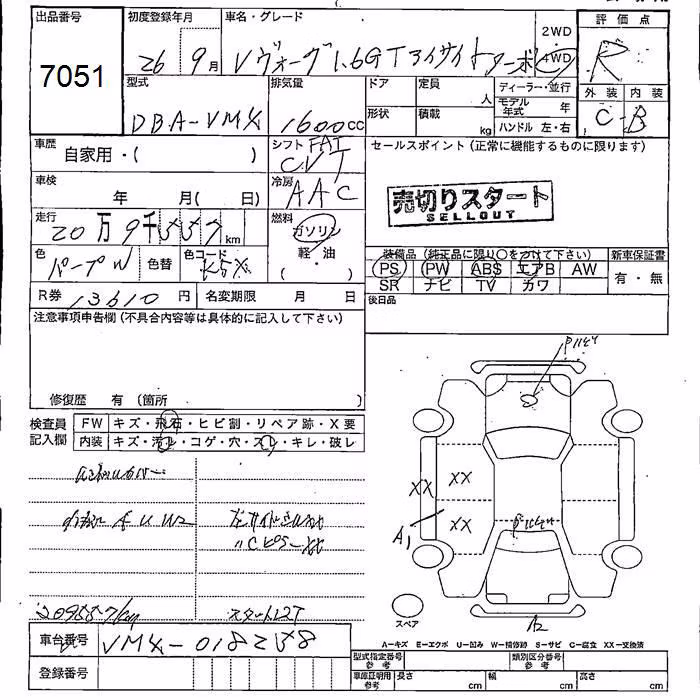 出品番号
7051
初度登録年月
26 9月
車名・グレード
Vヴォーグ1.6GTアイサイト
2WD
4WD
評価点
R
外装 内装
C-B
型式
DBA-VM4
排気量
1600cc
ドア
定員
人
形状
積載
kg
ディーラー・並行
モデル年式 年
ハンドル 左・右
車歴
自家用・( )
シフト FAT
CVT
セールスポイント (正常に機能するものに限ります)
車検
年 月( 日)
冷房
AAC
売切りスタート
SELLOUT
走行
20万9千557km
燃料
ガソリン
軽・油
( ・ )
色
パープル
色替
色コード
K5X
装備品 (純正品に限り○をつけて下さい)
PS PW ABS エアB AW
SR ナビ TV カワ
新車保証書
有・無
R券 13610円
名変期限 月 日
後日品
注意事項申告欄 (不具合内容等は具体的に記入して下さい)
修復歴 有 (箇所 )
検査員記入欄
FW キズ・飛石・ヒビ割・リペア跡・X要
内装 キズ・汚レ・コゲ・穴・スレ・キレ・破レ
XX XX
XX
A1
A2
スペア
209557km
スタートLST
車台番号
VM4-018258
登録番号
A-キズ E-エクボ U-凹み W-補修跡 S-サビ C-腐食 XX-交換済
型式指定番号
参考
類別区分番号
参考
車庫証明用
参考
長さ cm
幅 cm
高さ cm